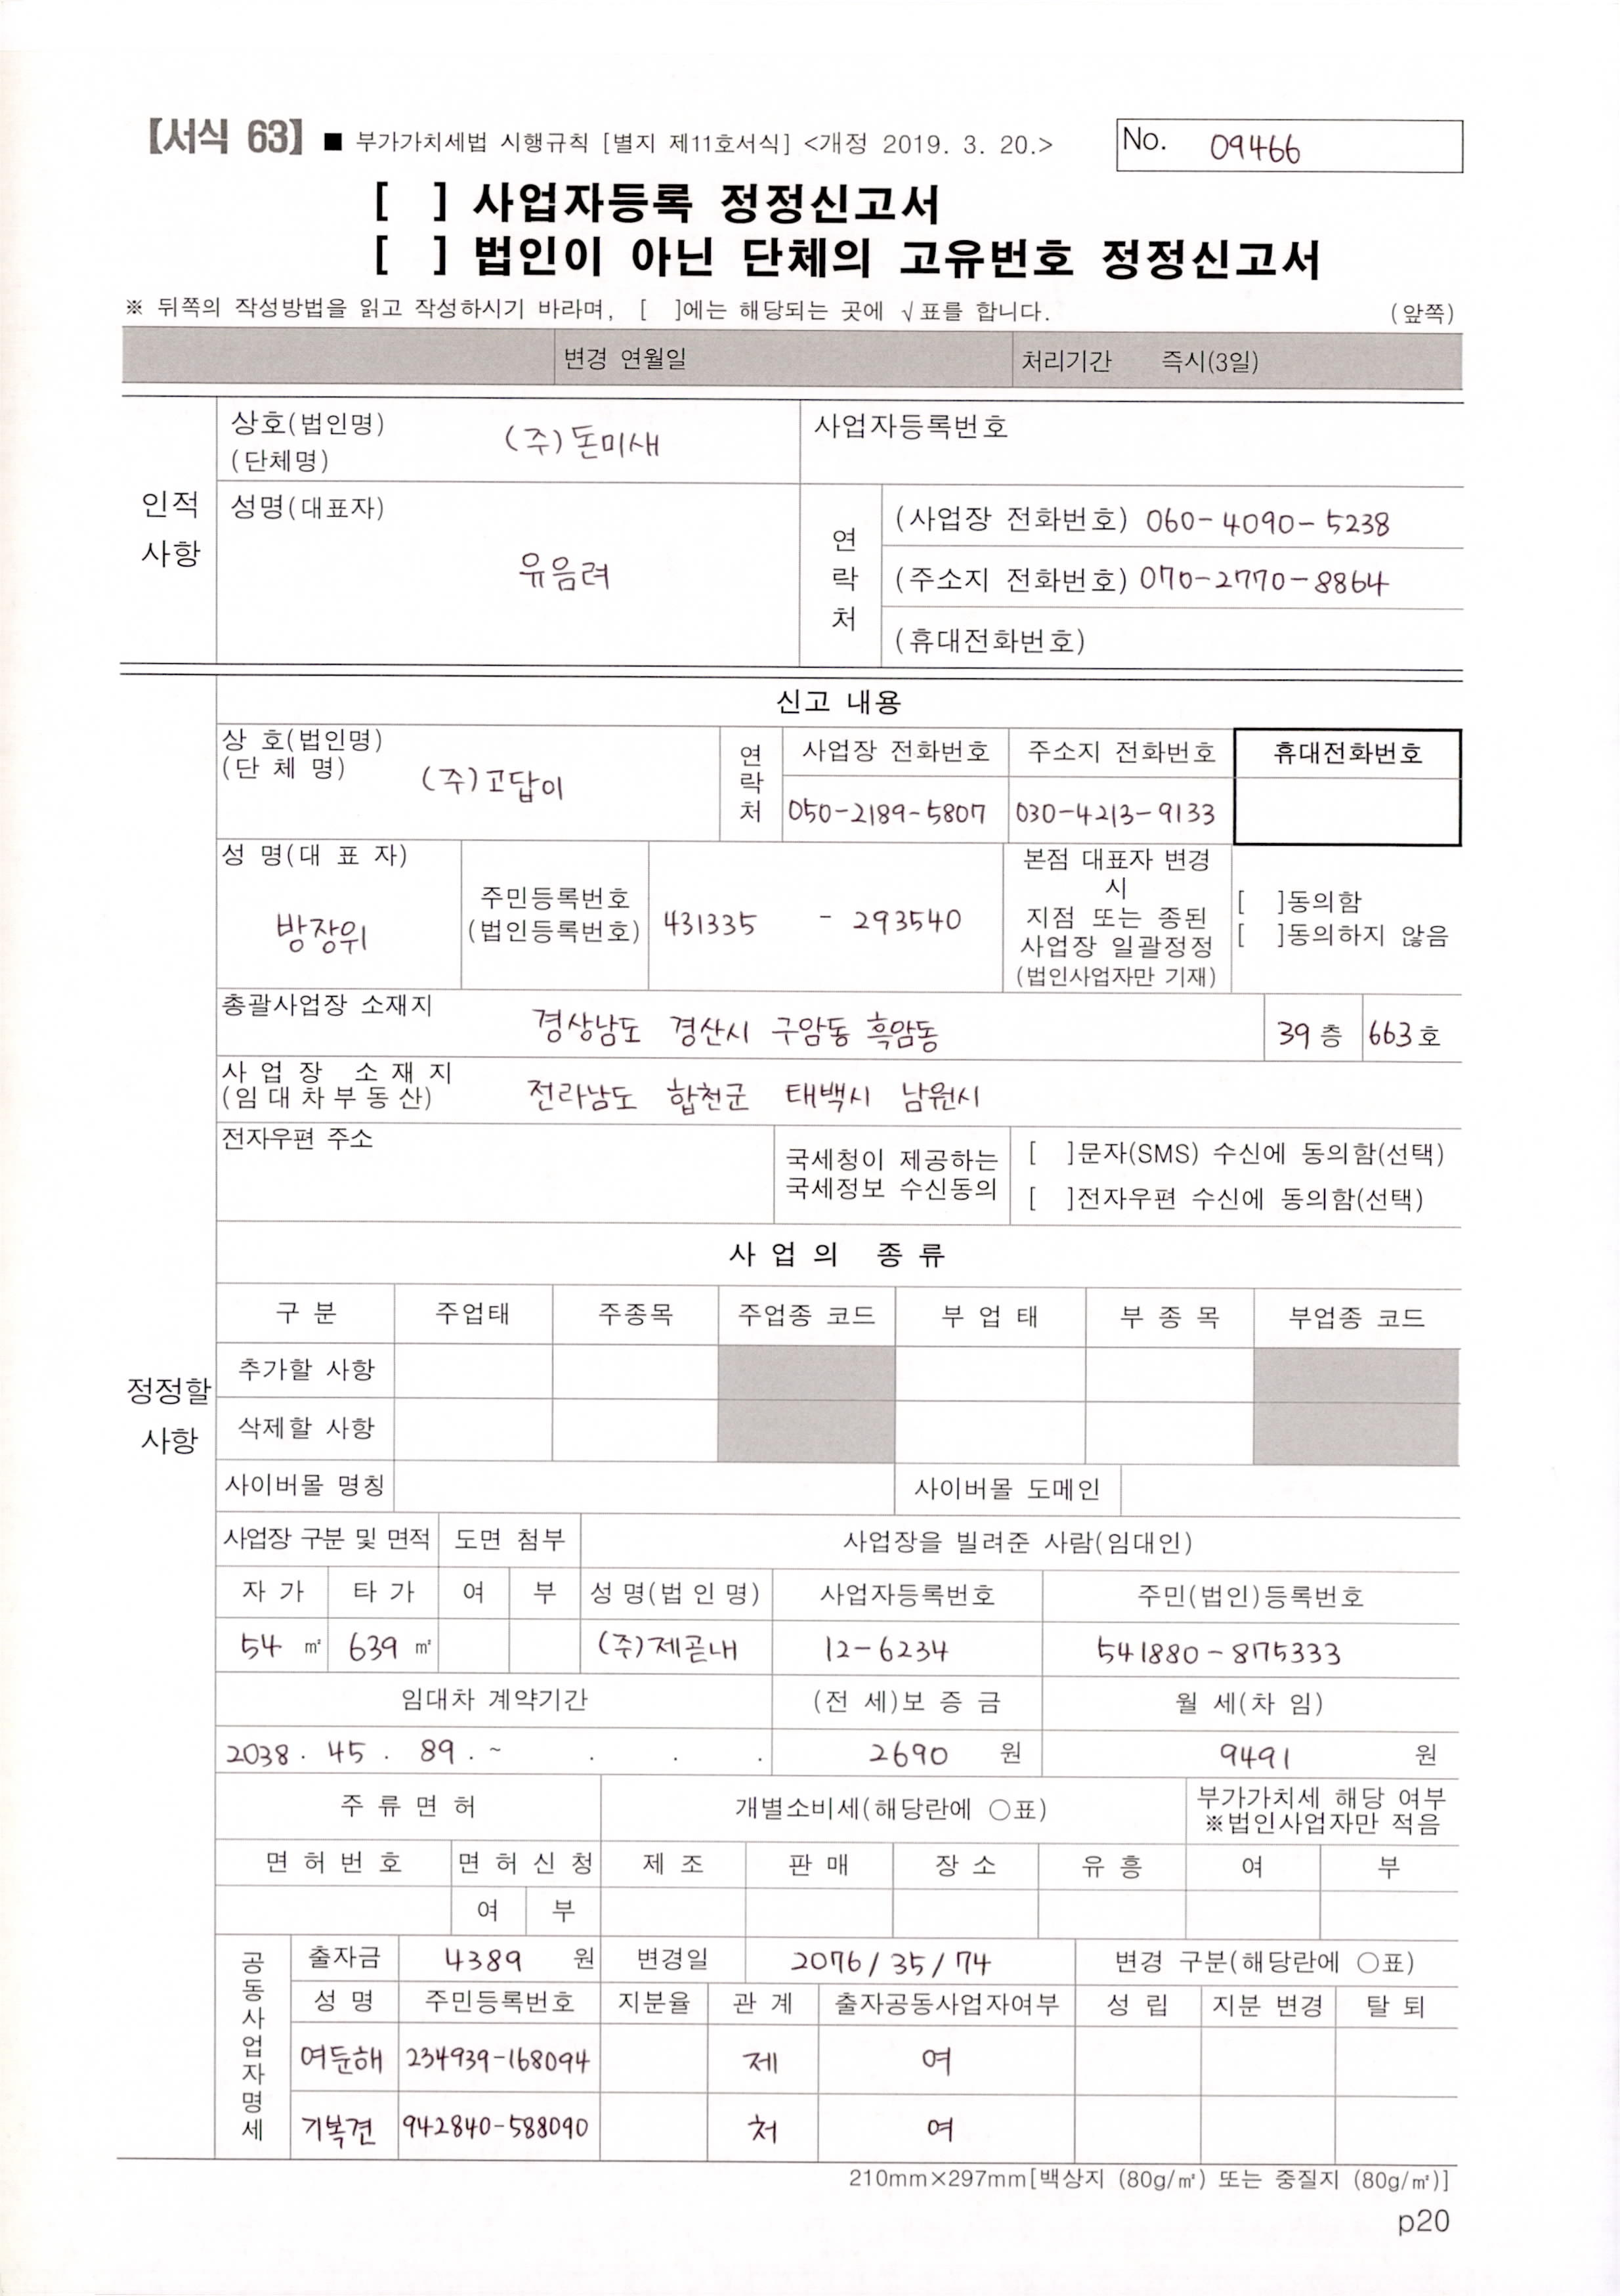 【서식 63】 ■ 부가가치세법 시행규칙 [별지 제11호서식] <개정 2019. 3. 20.>
No. 09466
[ ] 사업자등록 정정신고서
[ ] 법인이 아닌 단체의 고유번호 정정신고서
※ 뒤쪽의 작성방법을 읽고 작성하시기 바라며, [ ]에는 해당되는 곳에 √표를 합니다. (앞쪽)
변경 연월일 처리기간 즉시(3일)
인적
사항
상호(법인명)
(단체명)
(주)돈미새
사업자등록번호
성명(대표자)
유음려
연
락
처
(사업장 전화번호) 060-4090-5238
(주소지 전화번호) 070-2770-8864
(휴대전화번호)
정정할
사항
신고 내용
상 호(법인명)
(단 체 명)
(주)고답이
연
락
처
사업장 전화번호 주소지 전화번호 휴대전화번호
050-2189-5807 030-4213-9133
성 명(대 표 자)
방장위
주민등록번호
(법인등록번호)
431335 - 293540
본점 대표자 변경
시
지점 또는 종된
사업장 일괄정정
(법인사업자만 기재)
[ ]동의함
[ ]동의하지 않음
총괄사업장 소재지
경상남도 경산시 구암동 흑암동 39 층 663 호
사 업 장 소 재 지
(임 대 차 부 동 산)
전라남도 합천군 태백시 남원시
전자우편 주소
국세청이 제공하는
국세정보 수신동의
[ ]문자(SMS) 수신에 동의함(선택)
[ ]전자우편 수신에 동의함(선택)
사 업 의 종 류
구 분 주업태 주종목 주업종 코드 부 업 태 부 종 목 부업종 코드
추가할 사항
삭제할 사항
사이버몰 명칭 사이버몰 도메인
사업장 구분 및 면적 도면 첨부 사업장을 빌려준 사람(임대인)
자 가 타 가 여 부 성 명(법 인 명) 사업자등록번호 주민(법인)등록번호
54 ㎡ 639 ㎡ (주)제곧내 12-6234 541880-875333
임대차 계약기간 (전 세)보 증 금 월 세(차 임)
2038 . 45 . 89 . ~ . . . 2690 원 9491 원
주 류 면 허 개별소비세(해당란에 ○표)
부가가치세 해당 여부
※법인사업자만 적음
면 허 번 호 면 허 신 청 제 조 판 매 장 소 유 흥 여 부
여 부
공
동
사
업
자
명
세
출자금 4389 원 변경일 2076/35/74 변경 구분(해당란에 ○표)
성 명 주민등록번호 지분율 관 계 출자공동사업자여부 성 립 지분 변경 탈 퇴
여둔해 234939-168094 제 여
기복견 942840-588090 처 여
210mm×297mm[백상지 (80g/㎡) 또는 중질지 (80g/㎡)]
p20